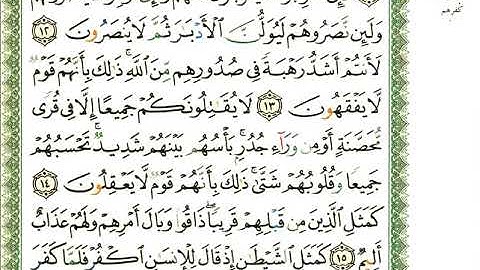 وَلَئِن نَّصَرُوهُمْ لَيُوَلُّنَّ الْأَدْبَارَ ثُمَّ لَا يُنصَرُونَ ١٢
لَأَنتُمْ أَشَدُّ رَهْبَةً فِي صُدُورِهِم مِّنَ اللَّهِ ۚ ذَٰلِكَ بِأَنَّهُمْ قَوْمٌ
لَّا يَفْقَهُونَ ١٣ لَا يُقَاتِلُونَكُمْ جَمِيعًا إِلَّا فِي قُرًى
مُّحَصَّنَةٍ أَوْ مِن وَرَاءِ جُدُرٍ ۚ بَأْسُهُم بَيْنَهُمْ شَدِيدٌ ۚ تَحْسَبُهُمْ
جَمِيعًا وَقُلُوبُهُمْ شَتَّىٰ ۚ ذَٰلِكَ بِأَنَّهُمْ قَوْمٌ لَّا يَعْقِلُونَ ١٤
كَمَثَلِ الَّذِينَ مِن قَبْلِهِمْ قَرِيبًا ۖ ذَاقُوا وَبَالَ أَمْرِهِمْ وَلَهُمْ عَذَابٌ
أَلِيمٌ ١٥ كَمَثَلِ الشَّيْطَانِ إِذْ قَالَ لِلْإِنسَانِ اكْفُرْ فَلَمَّا كَفَرَ